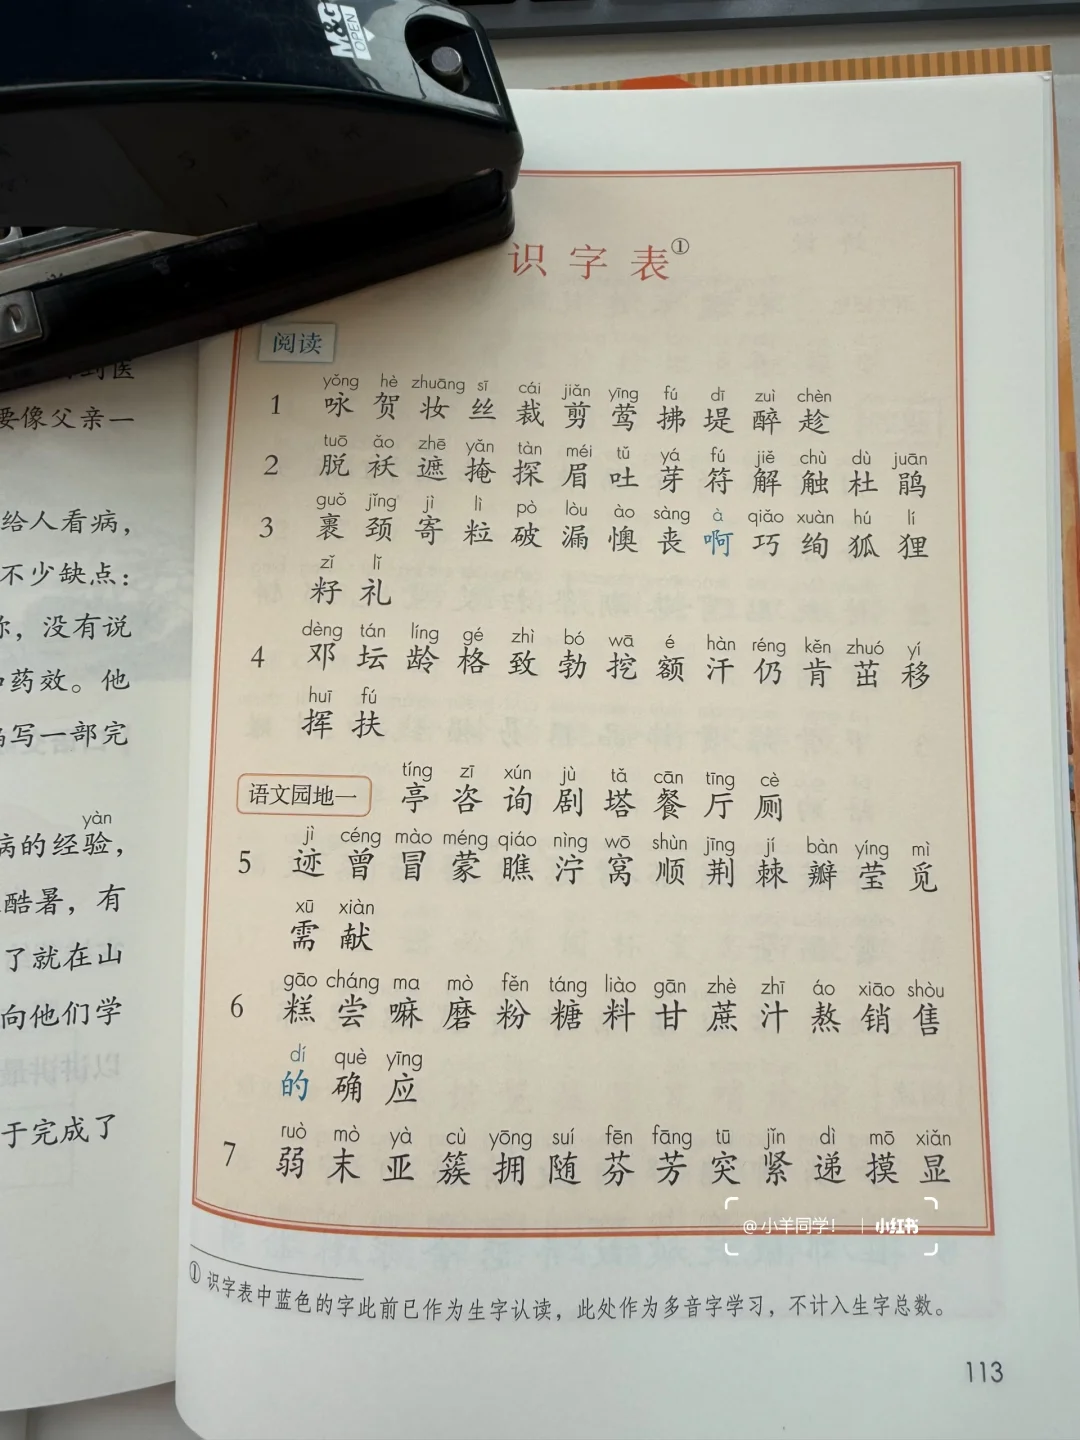 M&G
OPEN
识字表①
阅读
yǒng hè zhuāng sī cái jiǎn yīng fú dī zuì chèn
1 咏 贺 妆 丝 裁 剪 莺 拂 堤 醉 趁
tuō ǎo zhē yǎn tàn méi tǔ yá fú jiě chù dù juān
2 脱 袄 遮 掩 探 眉 吐 芽 符 解 触 杜 鹃
guǒ jǐng jì lì pò lòu ào sàng à qiǎo xuàn hú lí
3 裹 颈 寄 粒 破 漏 懊 丧 啊 巧 绚 狐 狸
zǐ lǐ
籽 礼
dèng tán líng gé zhì bó wā é hàn réng kěn zhuó yí
4 邓 坛 龄 格 致 勃 挖 额 汗 仍 肯 茁 移
huī fú
挥 扶
tíng zī xún jù tǎ cān tīng cè
语文园地一 亭 咨 询 剧 塔 餐 厅 厕
jì céng mào méng qiáo nìng wō shùn jīng jí bàn yíng mì
5 迹 曾 冒 蒙 瞧 泞 窝 顺 荆 棘 瓣 莹 觅
xū xiàn
需 献
gāo cháng ma mò fěn táng liào gān zhè zhī áo xiāo shòu
6 糕 尝 嘛 磨 粉 糖 料 甘 蔗 汁 熬 销 售
dí què yīng
的 确 应
ruò mò yà cù yōng suí fēn fāng tū jǐn dì mō xiǎn
7 弱 末 亚 簇 拥 随 芬 芳 突 紧 递 摸 显
@小羊同学！ | 小红书
① 识字表中蓝色的字此前已作为生字认读，此处作为多音字学习，不计入生字总数。
113
医
要像父亲一
给人看病，
不少缺点：
你，没有说
药效。他
写一部完
yàn
病的经验，
酷暑，有
了就在山
向他们学
于完成了